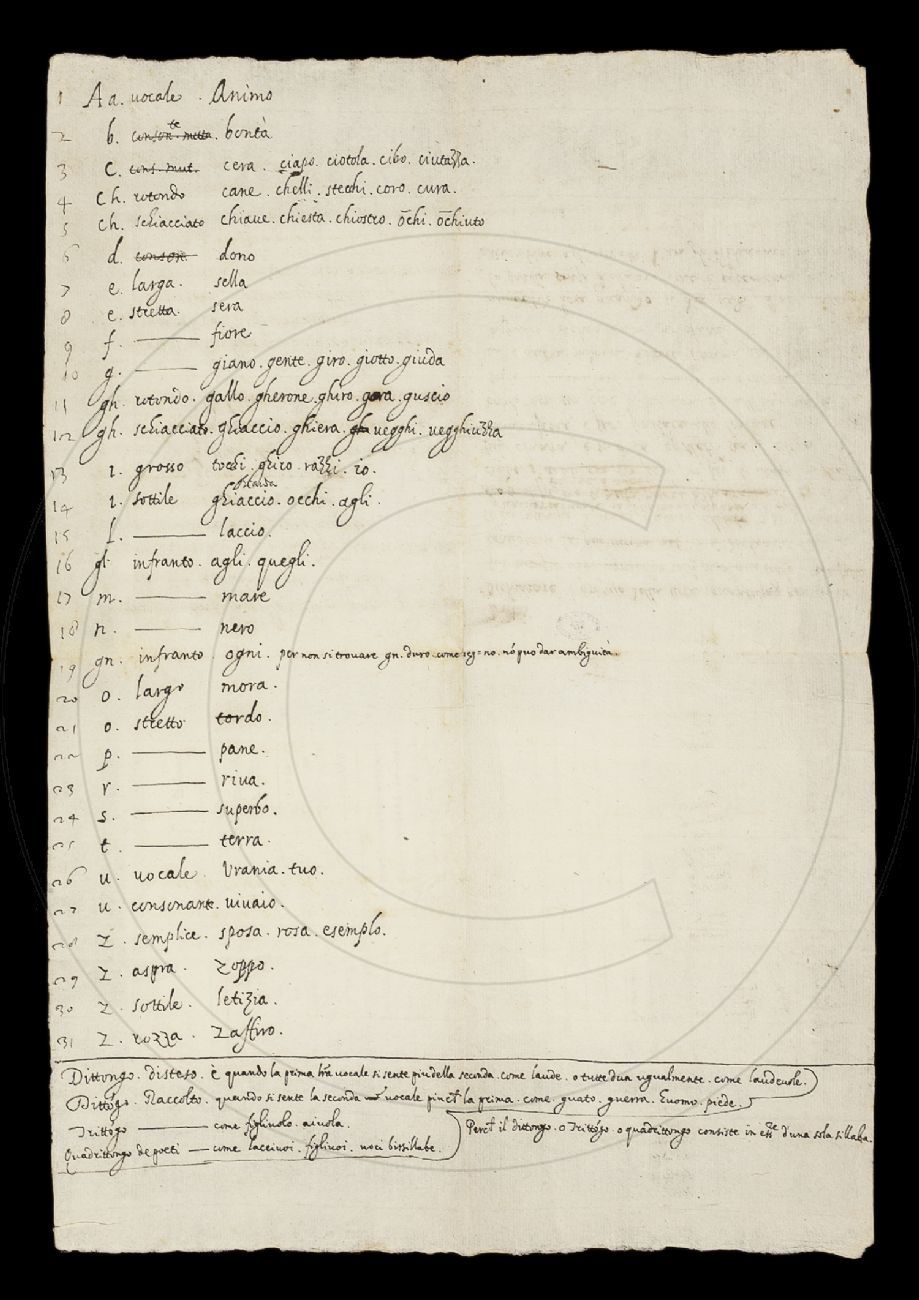 1 A a. vocale. Animo
2 b. conson.te muta. bontà
3 C. cons. mut. cera. ciapo. ciotola. cibo. ciutazza.
4 Ch. rotondo cane. chelli. stecchi. coro. cura.
5 Ch. schiacciato chiave. chiesta. chiostro. ōchi. ōchiuto
6 d. conson. dono
7 e. larga. sella
8 e. stretta. sera
9 f. fiore
10 g. giano. gente. giro. giotto. giuda
11 gh. rotondo. gallo. gherone. ghiro. gora. guscio
12 gh. schiacciato. ghiaccio. ghiera. gh vegghi. vegghiuzza
13 i. grosso tocchi. ghiro. razzi. io.
14 i. sottile ghiaccio. occhi. agli.
15 l. laccio.
16 gl infranto. agli. quegli.
17 m. mare
18 n. nero
19 gn. infranto. ogni. per non si trovare gn. duro. come seg=no. nō puo dar ambiguità.
20 o. largo mora.
21 o. stretto tordo.
22 p. pane.
23 r. riua.
24 s. superbo.
25 t. terra.
26 u. vocale. Vrania. tuo.
27 u. consonante. uiuaio.
28 Z. semplice. sposa. rosa. esemplo.
29 Z. aspra. Zoppo.
30 Z. sottile. letizia.
31 Z. rozza. Zaffiro.
Dittongo. Disteso. è quando la prima vocale si sente piu della seconda. come laude. o tutte dua ugualmente. come laudeuole.
Dittōgo. Raccolto. quando si sente la seconda vocale piu la prima. come. guato. guerra. Euomo. piede.
Trittōgo come figliuolo. aiuola.
Quadrittongo de poeti come lacciuoi. figliuoi. uoci bissillabe.
il dittongo. o Trittōgo. o quadrittongo consiste in d'una sola sillaba.